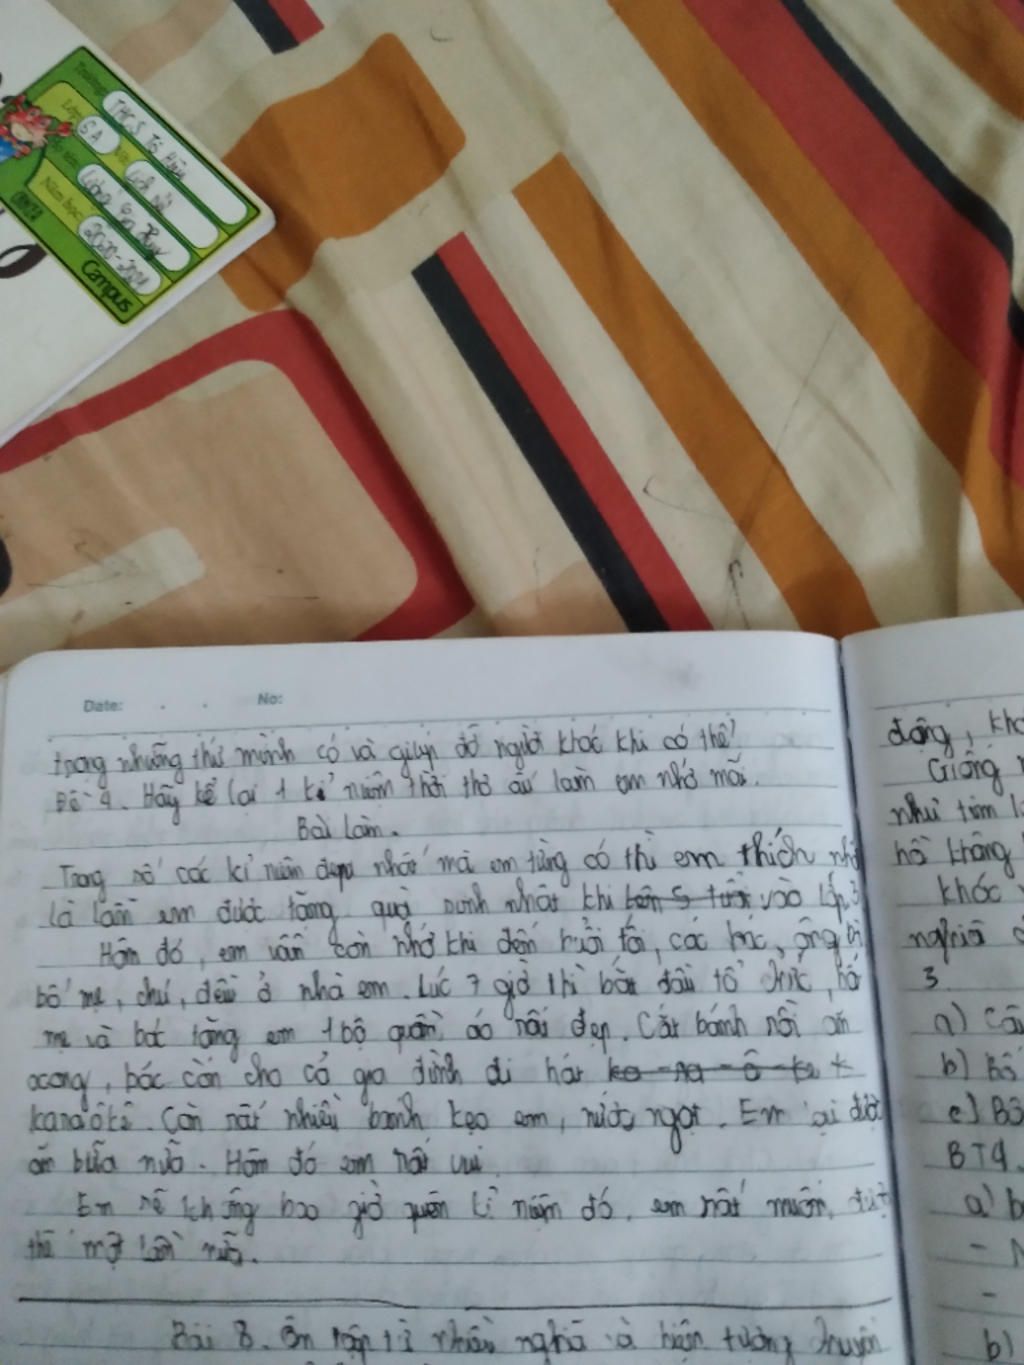 Trường: THCS Tố Hữu
Lớp: 6A
2020-2021
Campus
Date: . . No:
trong những thứ mình có và giúp đỡ người khác khi có thể!
Đề 4. Hãy kể lại 1 kỉ niệm thời thơ ấu làm em nhớ mãi.
Bài làm.
Trong số các kỉ niệm đẹp nhất mà em từng có thì em thích nhất
là lần em được tặng quà sinh nhật khi lên 5 tuổi vào lớp 3
Hôm đó, em vẫn còn nhớ khi đến buổi tối, các bác, ông bà
bố mẹ, chú, đều ở nhà em. Lúc 7 giờ thì bắt đầu tổ chức, bố
mẹ và bác tặng em 1 bộ quần áo rất đẹp. Cắt bánh rồi ăn
xong, bác còn cho cả gia đình đi hát ka-ra-ô-kê
karaôkê. Còn rất nhiều bánh kẹo em, nước ngọt. Em lại được
ăn bữa nữa. Hôm đó em rất vui.
Em sẽ không bao giờ quên kỉ niệm đó, em rất muốn được
thế một lần nữa.
Bài 8. Ôn tập từ nhiều nghĩa và hiện tượng chuyển
động, khá
Giống
như tìm
hồ không
khóc
nghĩa
3.
a) Câ
b) Bố
c) Bô
BT4.
a) b
-
-
b)